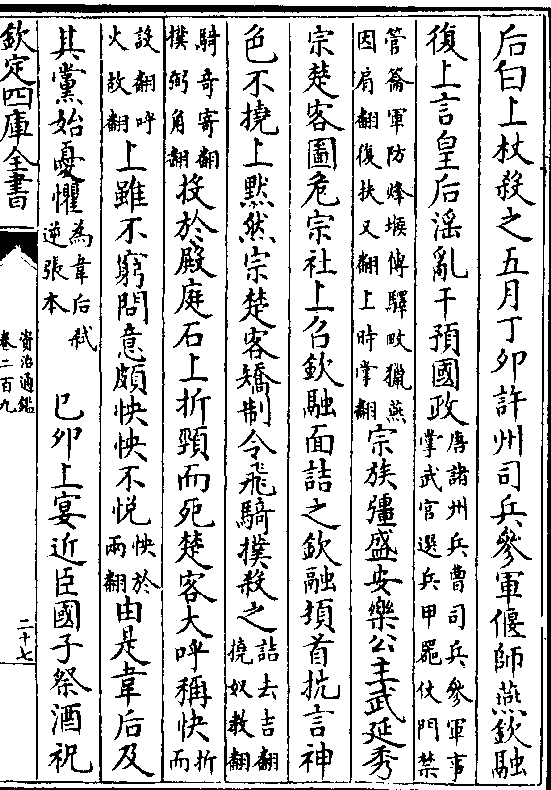 后白上杖殺之五月丁卯許州司兵參軍偃師燕欽融
復上言皇后淫亂干預國政唐諸州兵曹司兵參軍事
掌武官選兵甲器仗門禁
管籥軍防烽堠傳驛畋獵燕
因肩翻復扶又翻上時掌翻宗族彊盛安樂公主武延秀
宗楚客圖危宗社上召欽融面詰之欽融頓首抗言神
色不撓上默然宗楚客矯制令飛騎撲殺之詰去吉翻
撓奴教翻
騎奇寄翻
撲弼角翻投於殿庭石上折頸而死楚客大呼稱快折
而
設翻呼
火故翻上雖不窮問意頗怏怏不悅怏於
兩翻由是韋后及
其黨始憂懼為韋后弑
逆張本 己卯上宴近臣國子祭酒祝
欽定四庫全書
資治通鑑
卷二百九
二十七